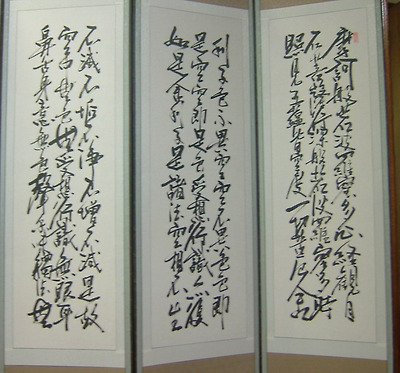 摩訶般若波羅蜜多心経観自
在菩薩行深般若波羅蜜多時
照見五蘊皆空度一切苦厄舎
利子色不異空空不異色色即
是空空即是色受想行識亦復
如是舎利子是諸法空相不生
不滅不垢不浄不増不減是故
空中無色無受想行識無眼耳
鼻舌身意無色聲香味觸法無